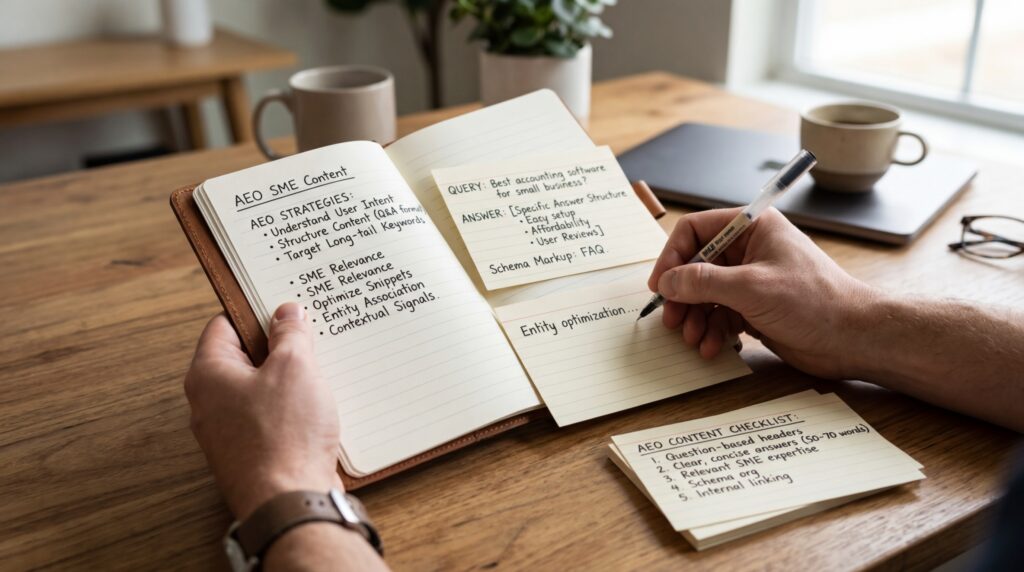 AEO SME Content
AEO STRATEGIES:
• Understand User Intent
• Structure Content (Q&A format
• Target Long-tail Keywords
• SME Relevance
• SME Relevance
• Optimize Snippets
• Entity Association
• Contextual Signals.
QUERY: Best accounting software
for small business?
ANSWER: [Specific Answer Structure
• Easy setup
• Affordability
• User Reviews]
Schema Markup: FAQ.
Entity optimization...
AEO CONTENT CHECKLIST:
1. Question-based headers
2. Clear, concise answers (50-70 words)
3. Relevant SME expertise
4. Schema org
5. Internal linking